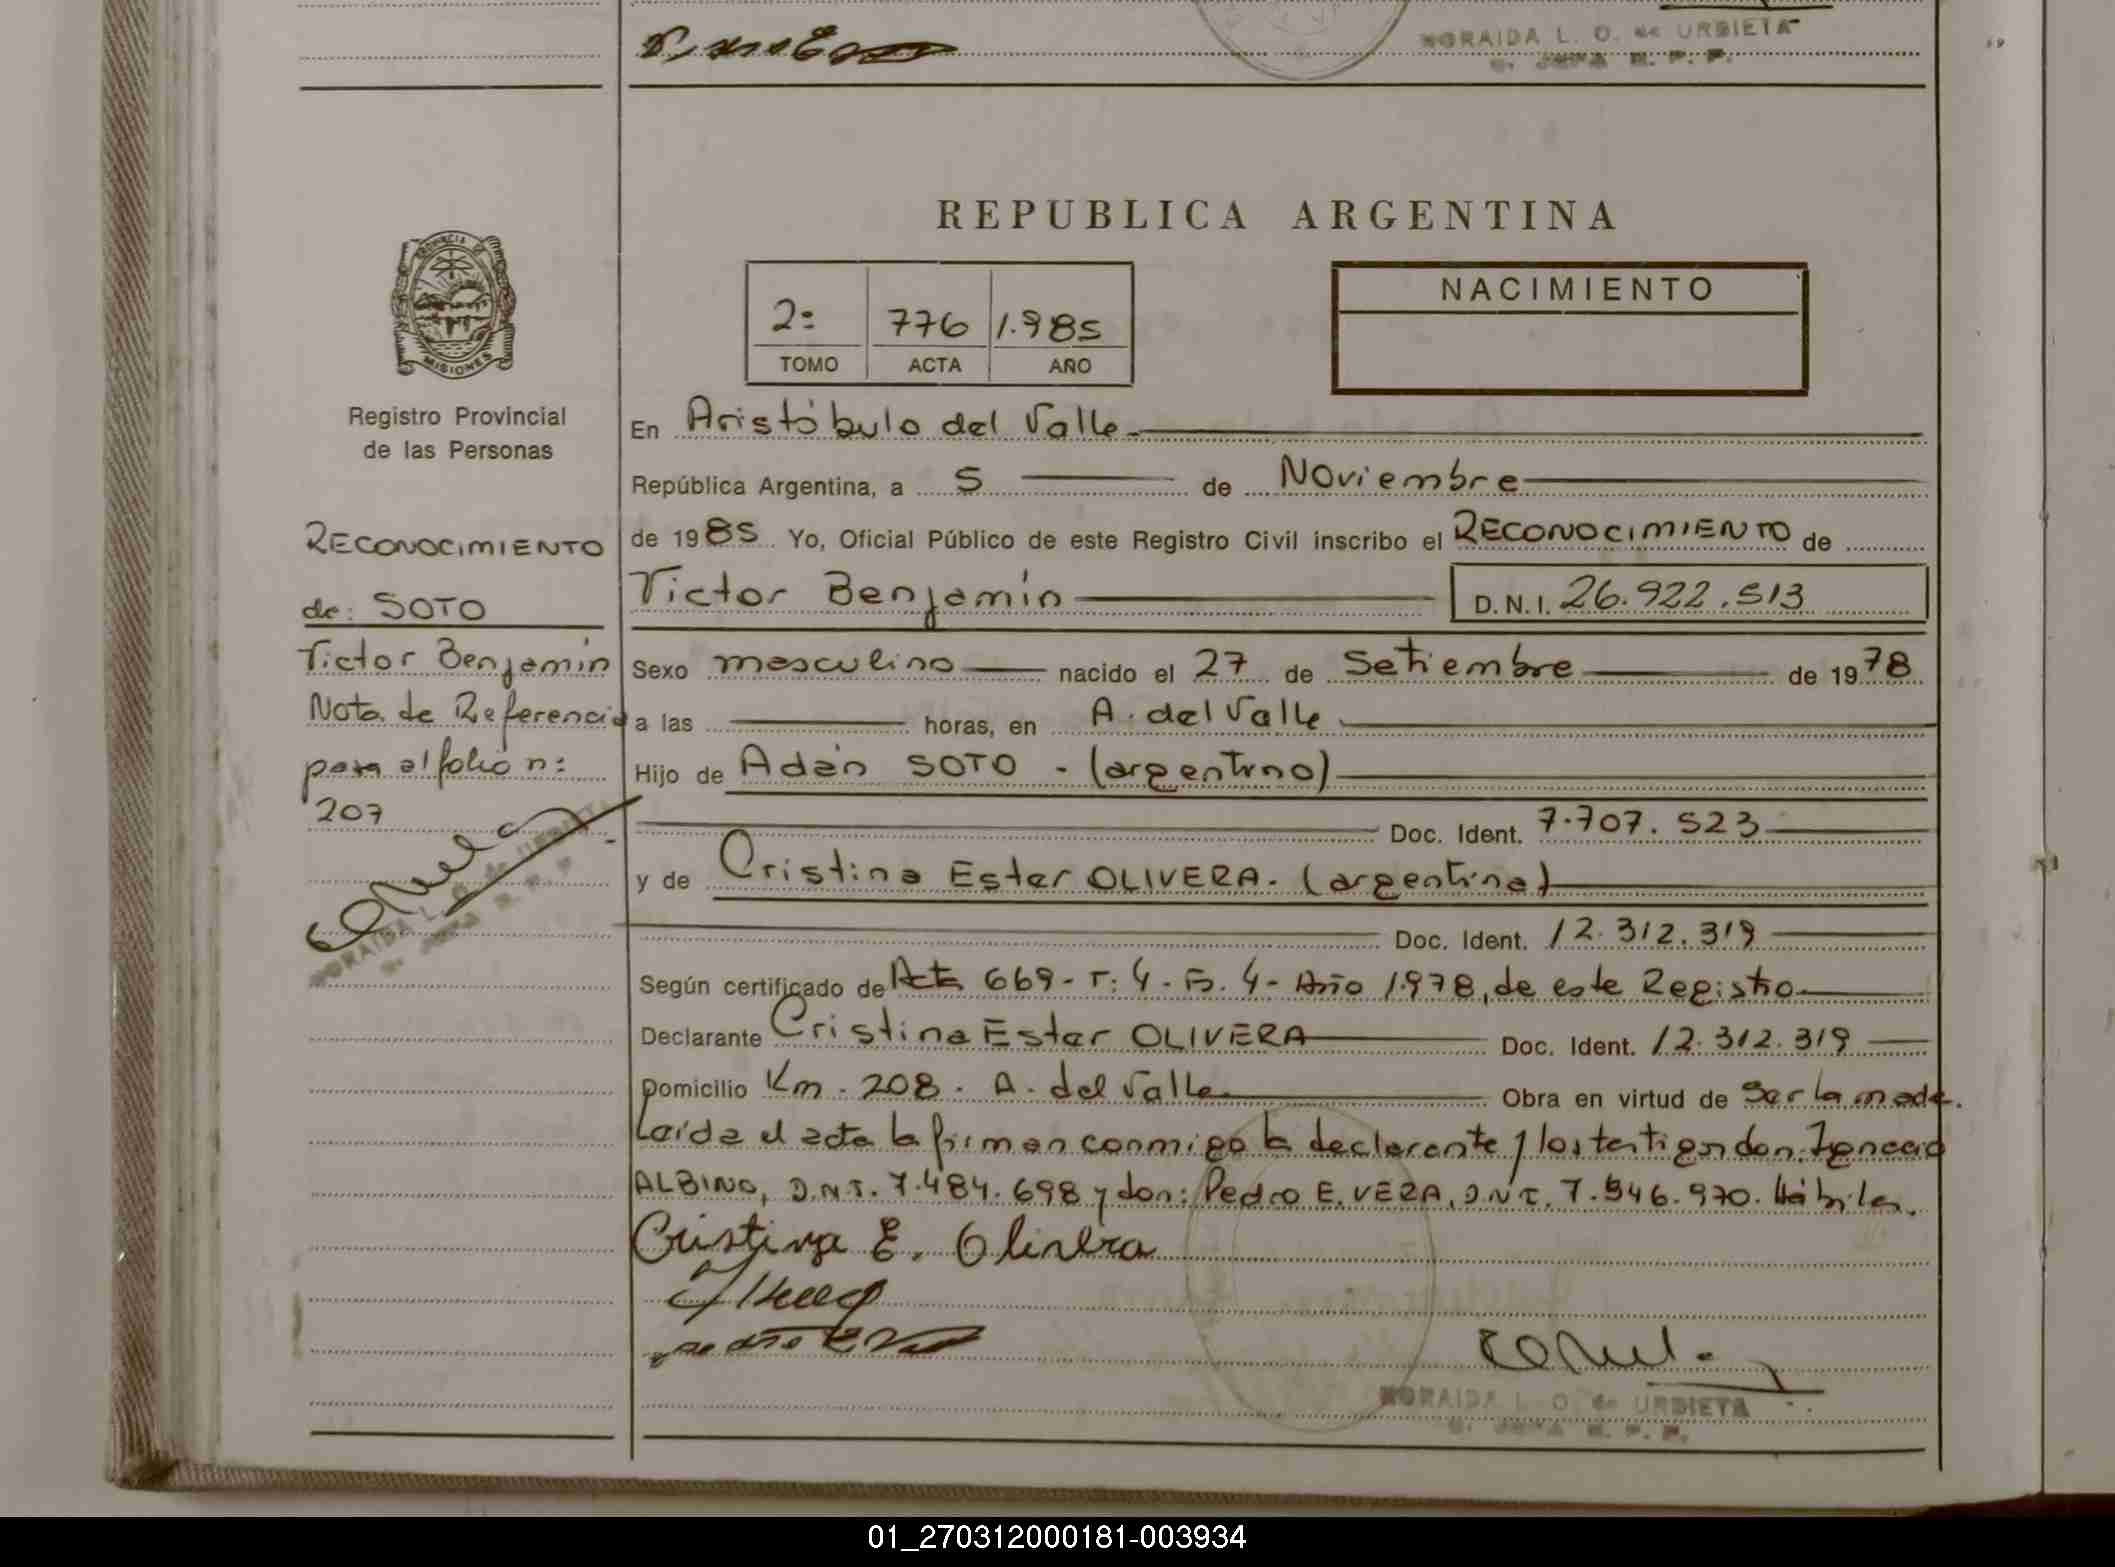 NORAIDA L. O. de URBIETA
REPUBLICA ARGENTINA
PROVINCIA DE
MISIONES
Registro Provincial
de las Personas
2:
776
1.985
TOMO
ACTA
AÑO
NACIMIENTO
En Aristóbulo del Valle.
República Argentina, a 5 de Noviembre
de 1985 Yo, Oficial Público de este Registro Civil inscribo el RECONOCIMIENTO de
Victor Benjamín D.N.I. 26.922.513
Sexo masculino nacido el 27 de Setiembre de 1978
a las horas, en A. del Valle
Hijo de Adán SOTO - (argentino)
Doc. Ident. 7.707.523
y de Cristina Ester OLIVERA. (argentina)
Doc. Ident. 12.312.319
Según certificado de Acta 669- T: 4 - F. 4- Año 1.978, de este Registro
Declarante Cristina Ester OLIVERA Doc. Ident. 12.312.319
Domicilio Km. 208. A. del Valle Obra en virtud de Ser la madre.
Leída el acta la firman conmigo la declarante y los testigos don: Ignacio
ALBINO, D.N.I. 7.484.698 y don: Pedro E. VERA, D.N.I. 7.546.970. Hábiles.
Cristina E. Olivera
NORAIDA L. O. de URBIETA
RECONOCIMIENTO
de: SOTO
Victor Benjamín
Nota de Referencia
para el folio n:
207
NORAIDA L. O. de URBIETA
01_270312000181-003934